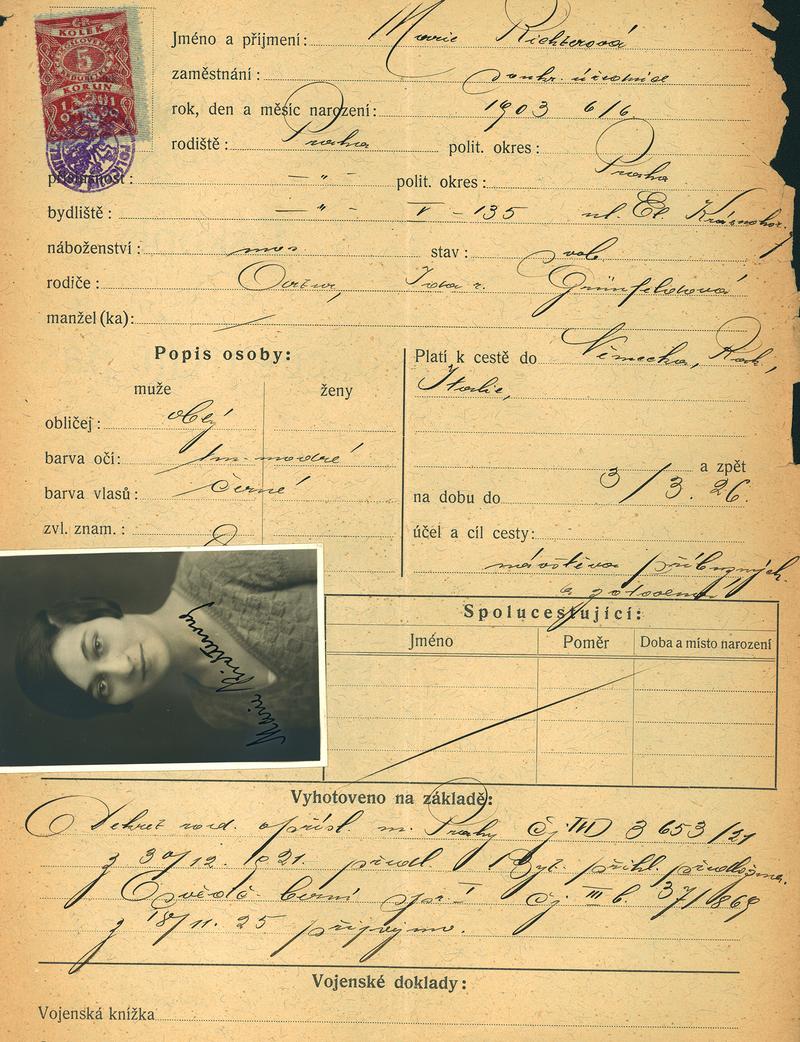 KOLEK
5
KORUN
Jméno a příjmení: Marie Richterová
zaměstnání: soukr. úřednice
rok, den a měsíc narození: 1903 6/6
rodiště: Praha polit. okres:
příslušnost: — " — polit. okres: Praha
bydliště: — " — V - 135 ul. El. Krásnohor.
náboženství: mos. stav: svob.
rodiče: Ida r. Grünfeldová
manžel (ka):
Popis osoby:
muže ženy
obličej: obl.ý
barva očí: tm-modré
barva vlasů: černé
zvl. znam.:
Platí k cestě do Německa, Rak.,
Italie,
a zpět
na dobu do 3/3. 26.
účel a cíl cesty:
návštěva příbuzných
a zotavení
Marie Richterová
Spolucestující:
Jméno Poměr Doba a místo narození
Vyhotoveno na základě:
Dekret o přísl. m. Prahy čj. III 3653/21
z 30/12. 1921. předl. Byt. přihl. předložena.
Osvědč. berní spr. čj. III b. 37/1869
z 18/11. 25 připojeno.
Vojenské doklady:
Vojenská knížka